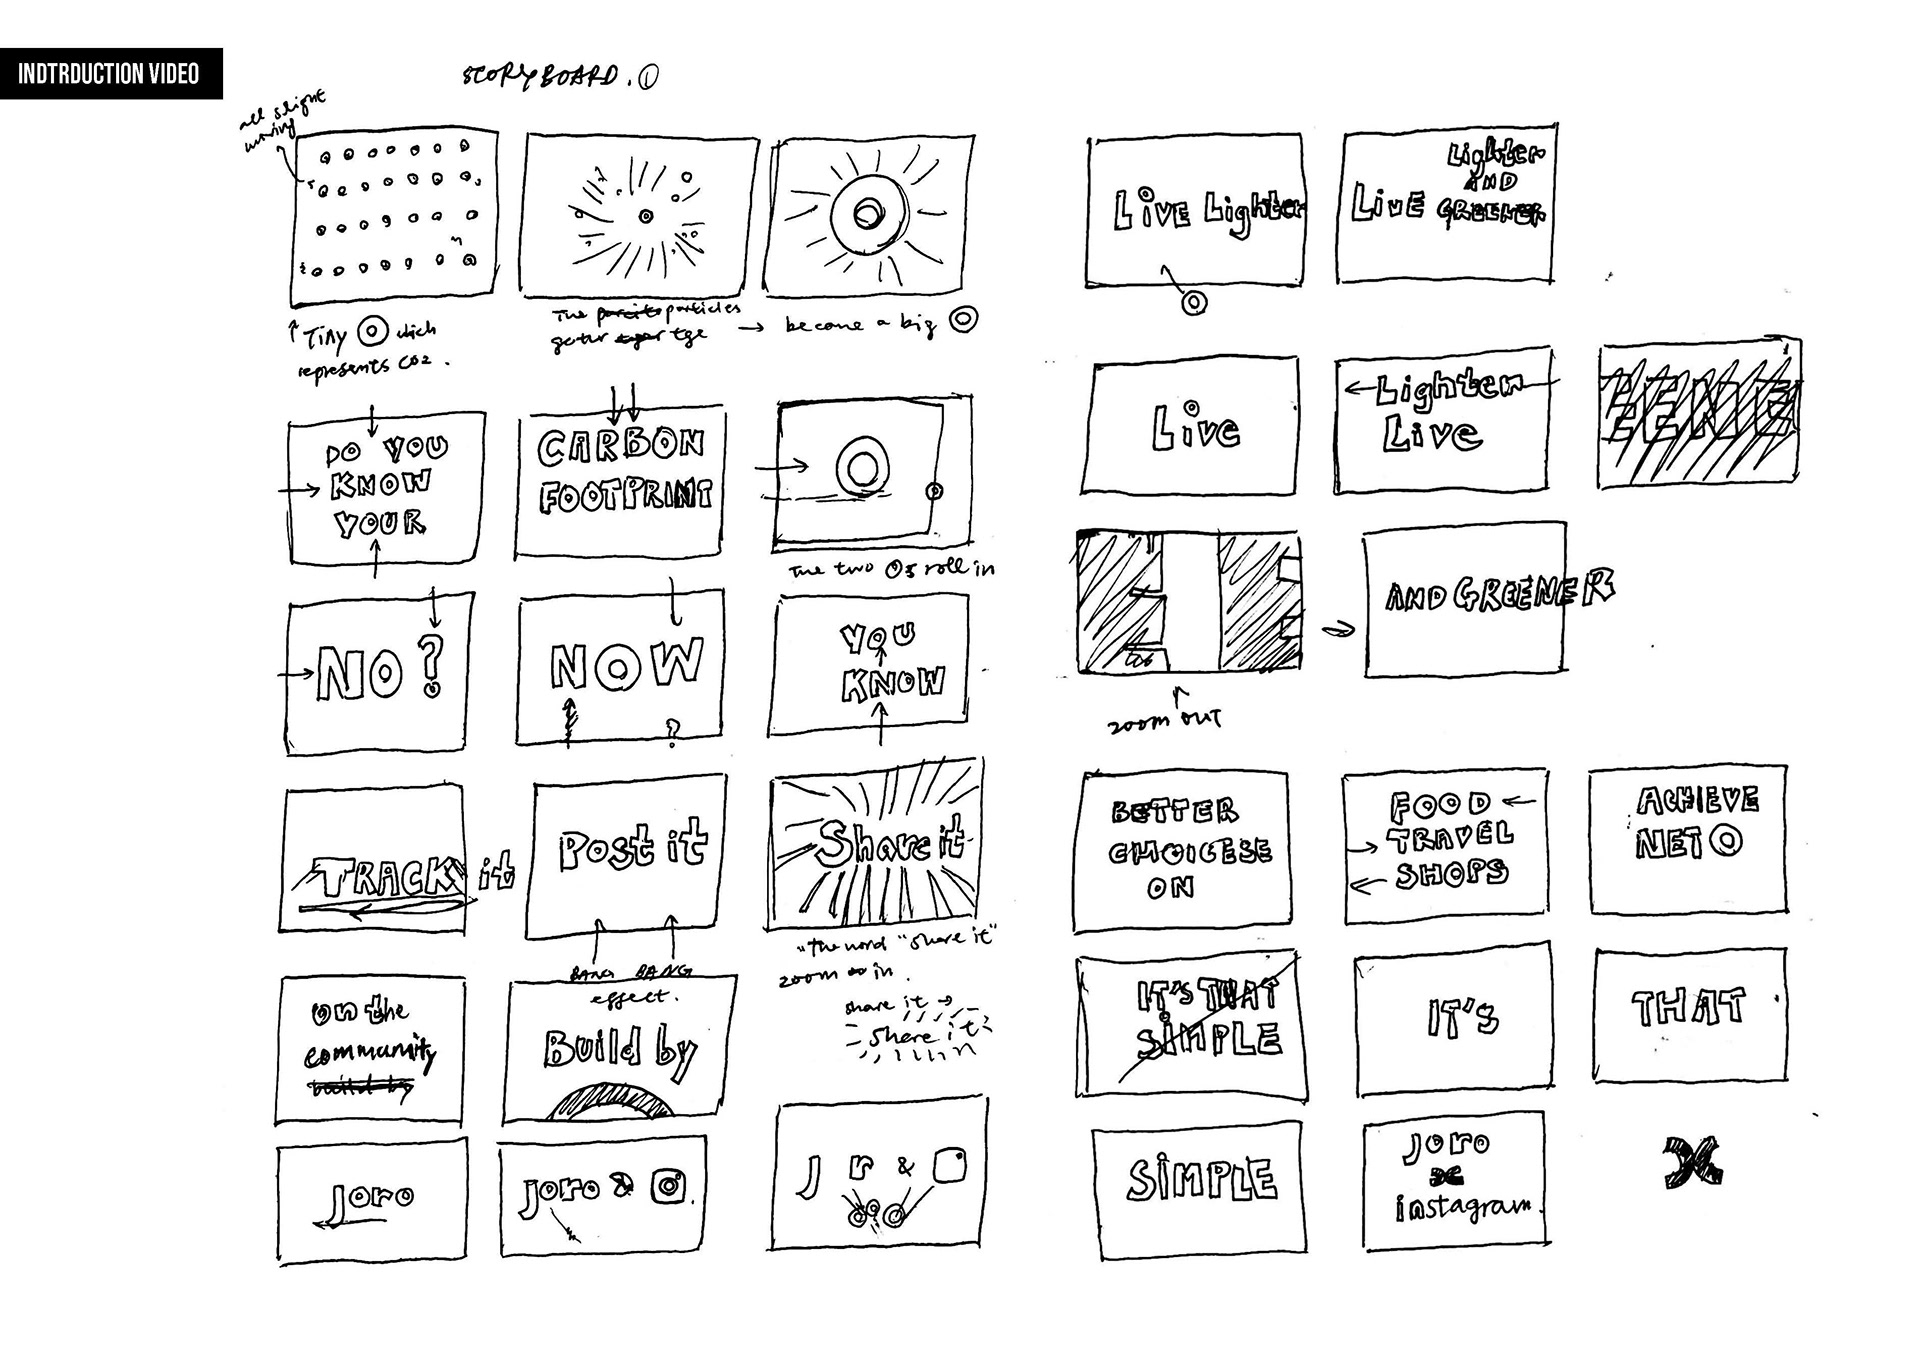 INDTRDUCTION VIDEO
STORYBOARD. ①
all slight
moving
Tiny ◎ which
represents CO2.
The particles
→ become a big ◎
DO YOU
KNOW
YOUR
CARBON
FOOTPRINT
The two Os roll in
NO?
NOW
?
YOU
KNOW
TRACK it
Post it
BANG BANG
effect.
Share it
"The word "share it"
zoom in.
share it →
share it
on the
community
Build by
joro
joro &
J r &
Live Lighter
Lighter
AND
LIVE GREENER
Live
Lighter
Live
EENE
zoom out
AND GREENER
BETTER
CHOICESE
ON
FOOD
TRAVEL
SHOPS
ACHIEVE
NET O
IT'S THAT
SIMPLE
IT'S
THAT
SIMPLE
joro
x
instagram.
x